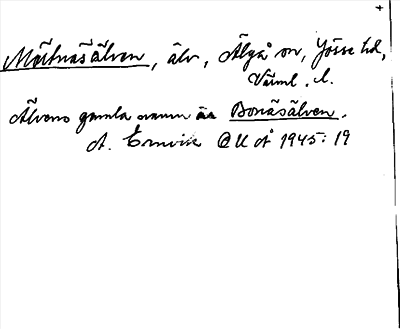 +
Mötnäsälven, älv, Älgå sn, Jösse hd,
Värml. l.
Älvens gamla namn är Bonäsälven.
A. Ernvik OUÅ 1945: 19